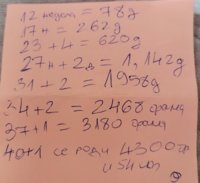 12 недели = 78g
17н = 262g
23 + 4 = 620g
27н + 2д = 1,142g
31 + 2 = 1958g
34 + 2 = 2468 грама
37 + 1 = 3180 грама
40+1 се роди 4300гр
и 54